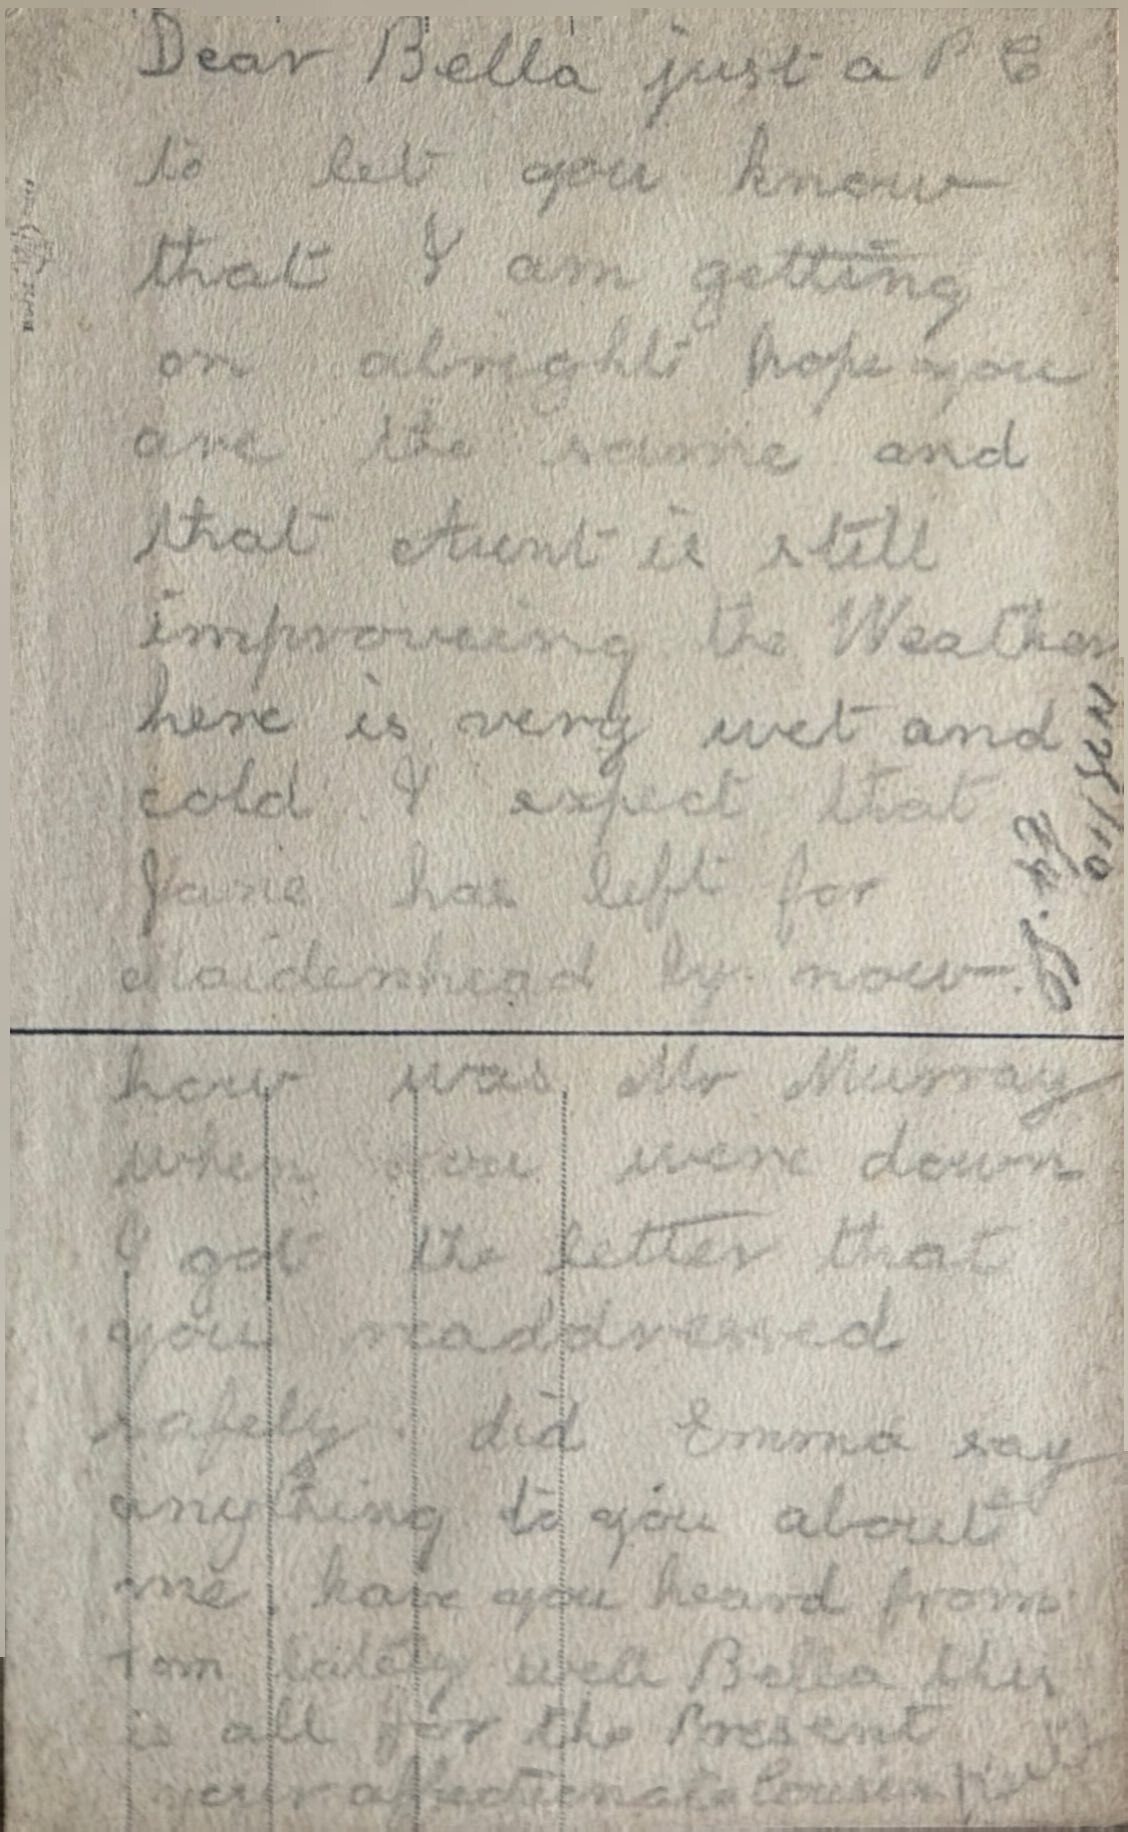 Dear Bella just a P C
to let you know
that I am getting
on alright hope you
are the same and
that Aunt is still
improveing the Weather
here is very wet and
cold I expect that
Jane has left for
Maidenhead by now.
how was Mr Murray
when you were down
I got the letter that
you readdressed
safely. did Emma say
anything to you about
me. have you heard from
Tom lately well Bella this
is all for the Present
your affectionate Cousin